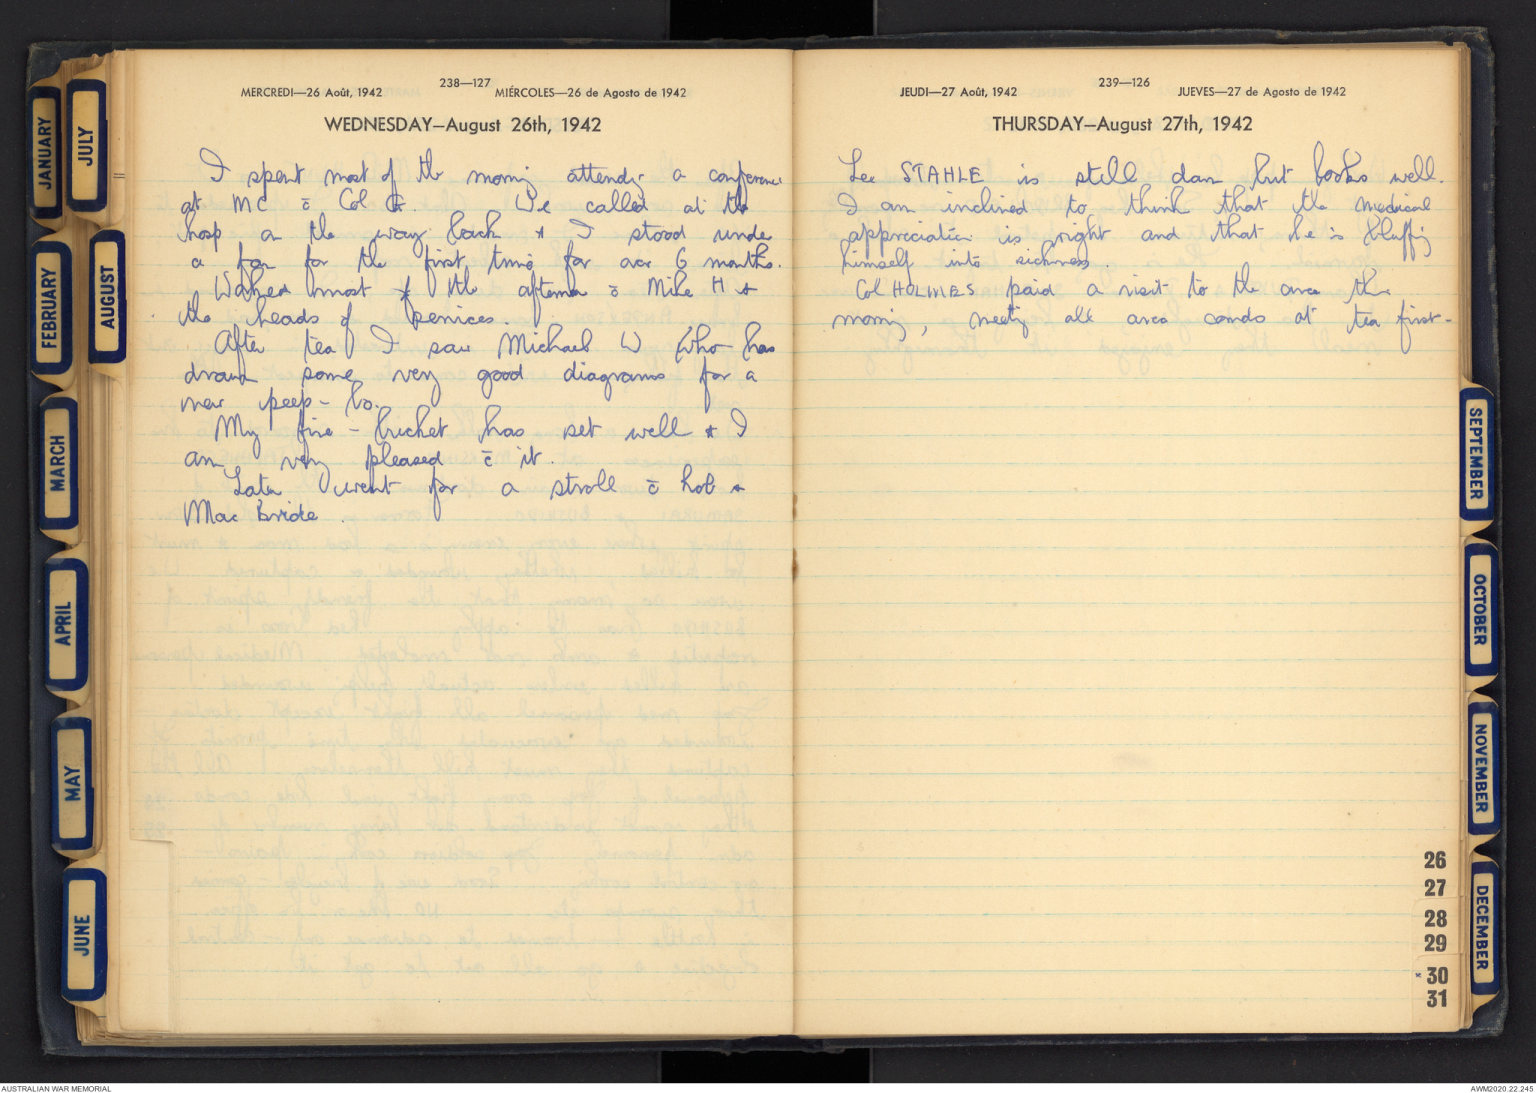 MERCREDI—26 Août, 1942
238—127
MIÉRCOLES—26 de Agosto de 1942
WEDNESDAY—August 26th, 1942
I spent most of the morning attending a conference
at MC c̄ Col G. We called at the
hosp on the way back + I stood under
a fan for the first time for over 6 months.
Walked most of the afternoon c̄ Mike H +
the heads of services.
After tea I saw Michael W who has
drawn some very good diagrams for a
new peep-
My fire-bucket has set well + I
am very pleased c̄ it
Later I went for a stroll c̄ Rob +
MacBride.
JEUDI—27 Août, 1942
239—126
JUEVES—27 de Agosto de 1942
THURSDAY—August 27th, 1942
Lee STAHLE is still down but looks well.
I am inclined to think that the medical
appreciation is right and that he is bluffing
himself into sickness
Col HOLMES paid a visit to the area this
morning, meeting all area comds at tea first-
JANUARY
FEBRUARY
MARCH
APRIL
MAY
JUNE
JULY
AUGUST
SEPTEMBER
OCTOBER
NOVEMBER
DECEMBER
26
27
28
29
30
31
AUSTRALIAN WAR MEMORIAL
AWM2020.22.245